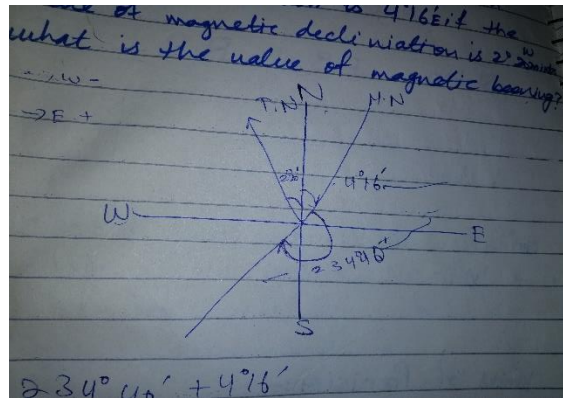 of is 4°16'E if the
of magnetic decliniattion is 2° W
what is the value of magnetic bearing?
W -
→ E +
T.N N M.N
4°16'
W E
234°40'
S
234° 40' + 4°16'